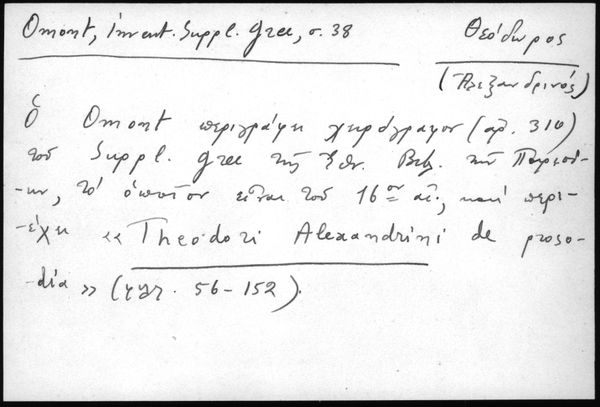 Omont, Invent. Suppl. Grec, σ. 38
Θεόδωρος
(Ἀλεξανδρινός)
Ὁ Omont περιγράφει χειρόγραφον (ἀρ. 310)
τοῦ Suppl. Grec τῆς Ἐθν. Βιβ. τῶν Παρισί-
-ων, τὸ ὁποῖον εἶναι τοῦ 16ου αἰ., καὶ περι-
-έχει «Theodori Alexandrini de proso-
-dia» (φφ. 56-152).